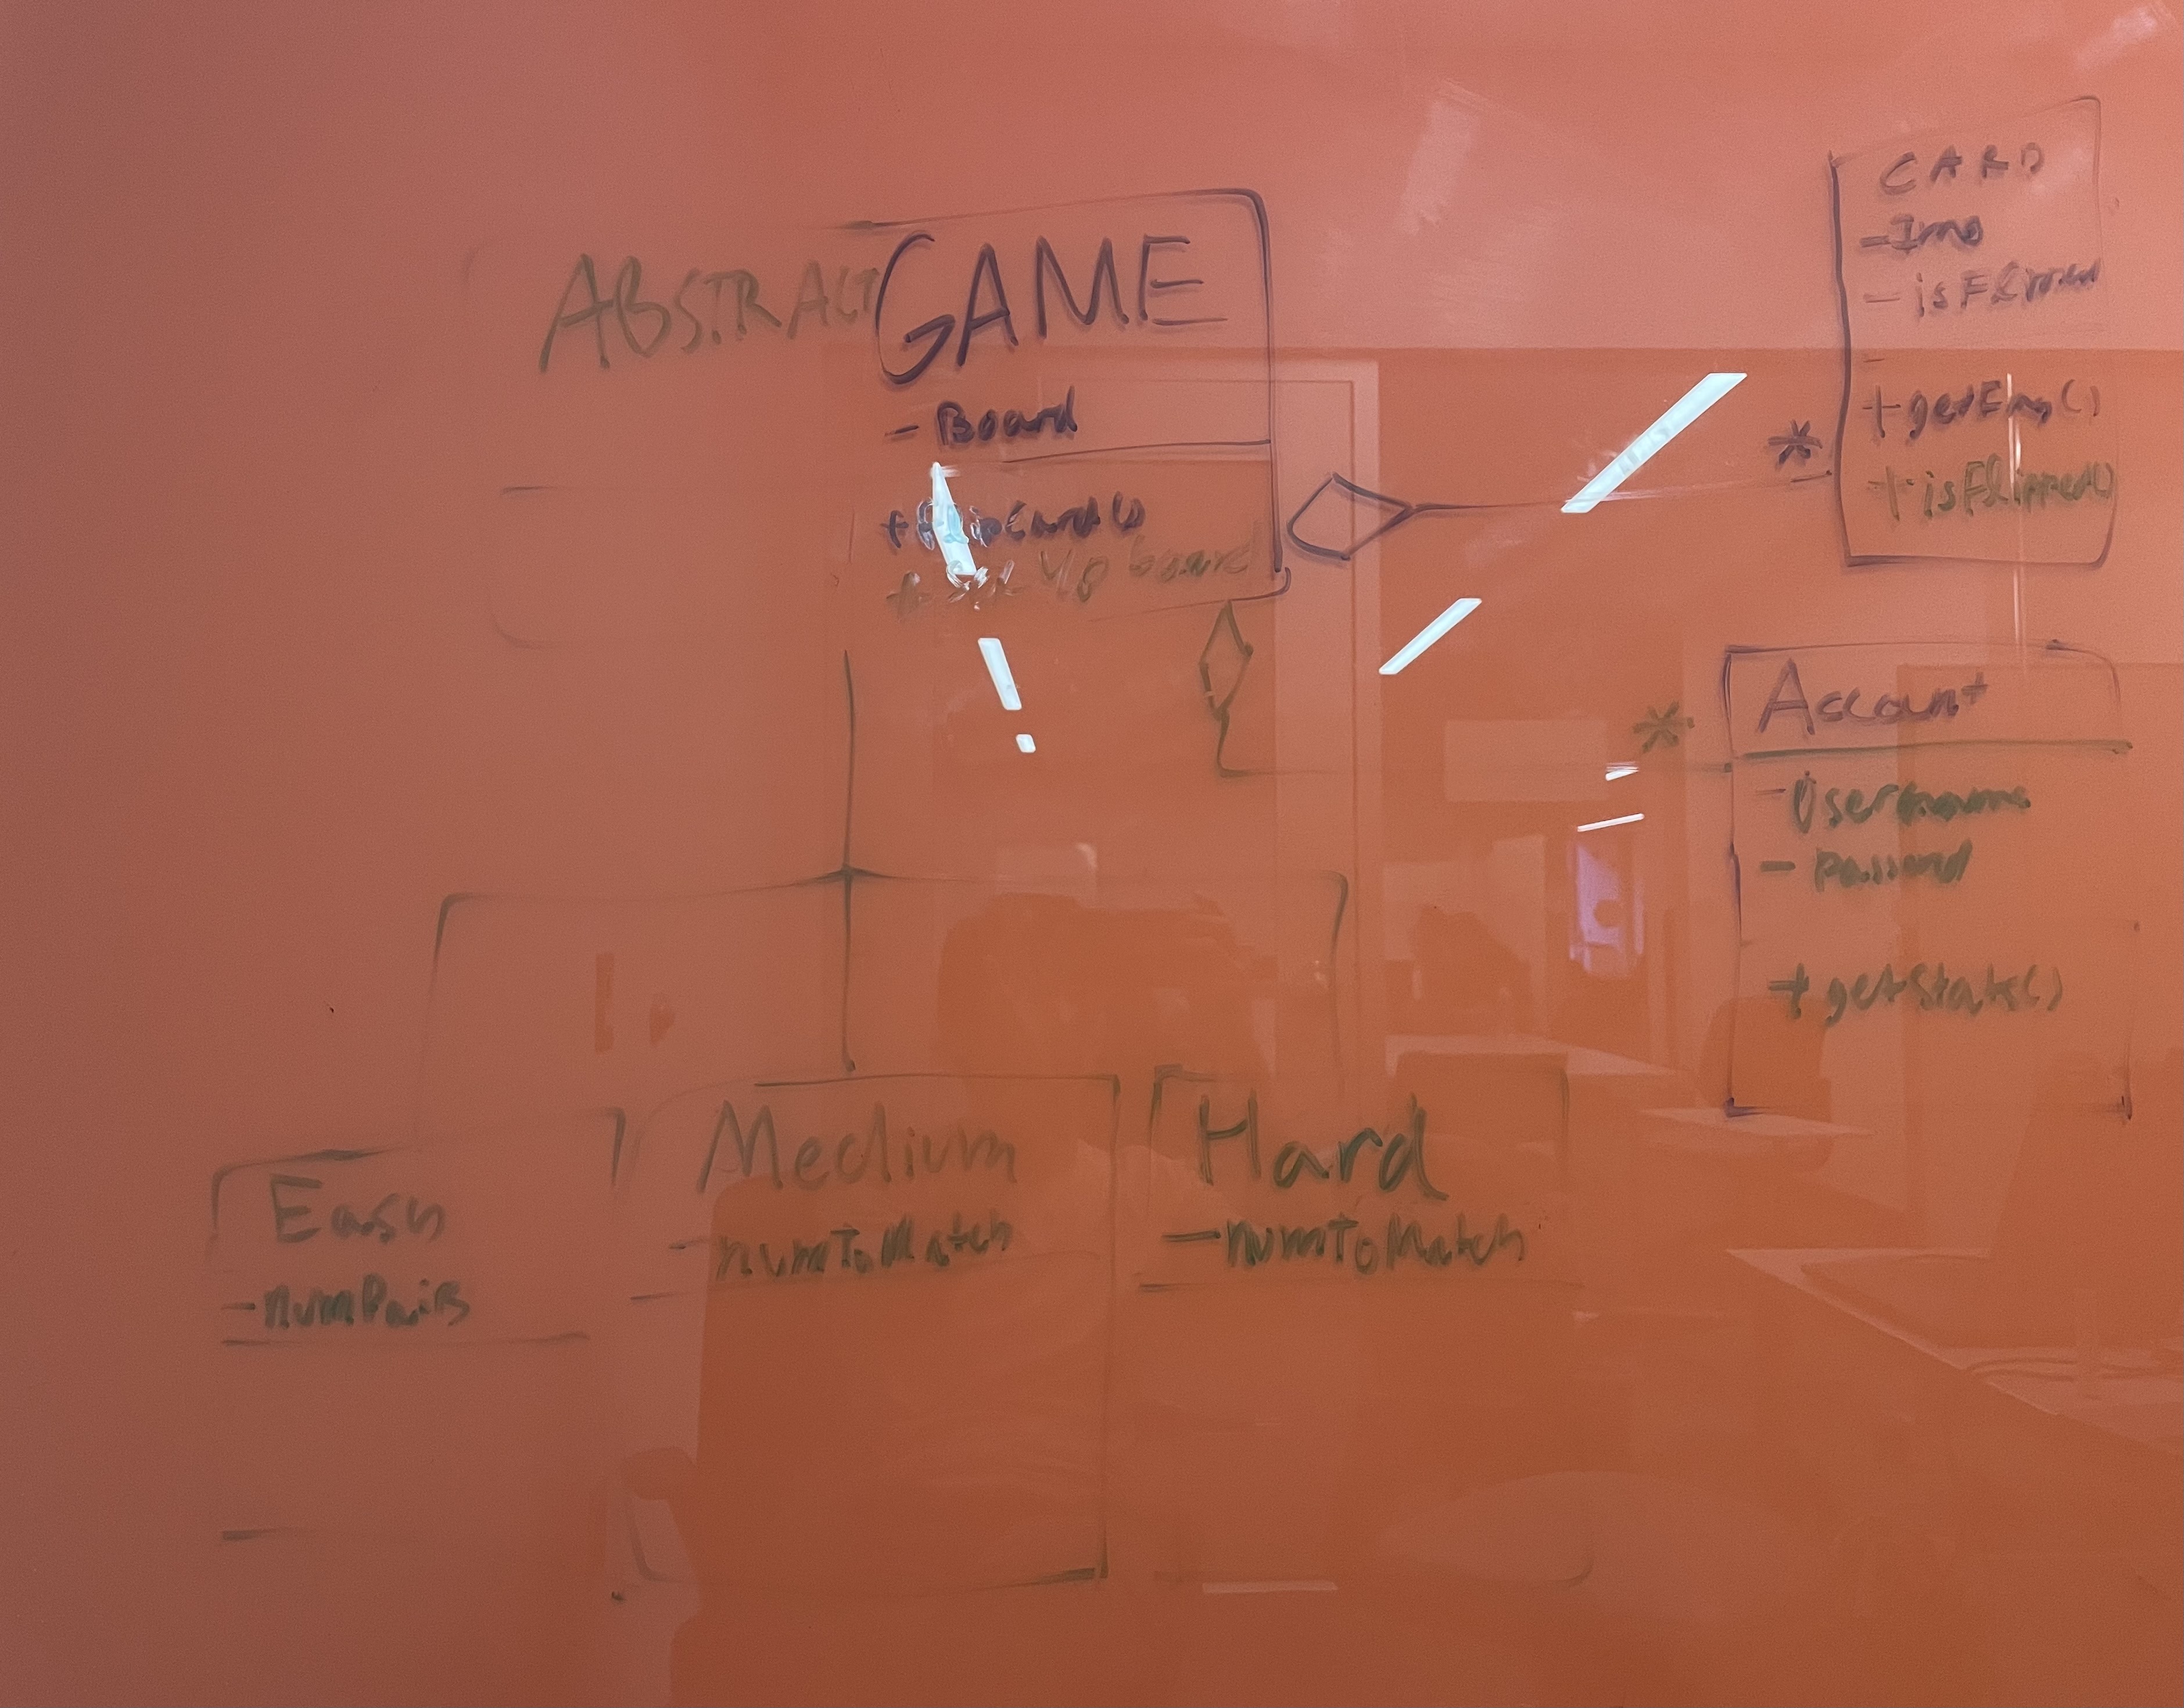 ABSTRACT GAME
- Board
+ flipCard()
+ set Up board
CARD
- Img
- isFlipped
-
+ getImg()
+ isFlipped()
*
*
Account
- Username
- Password
+ getStats()
Easy
- numPairs
Medium
- numToMatch
Hard
- numToMatch